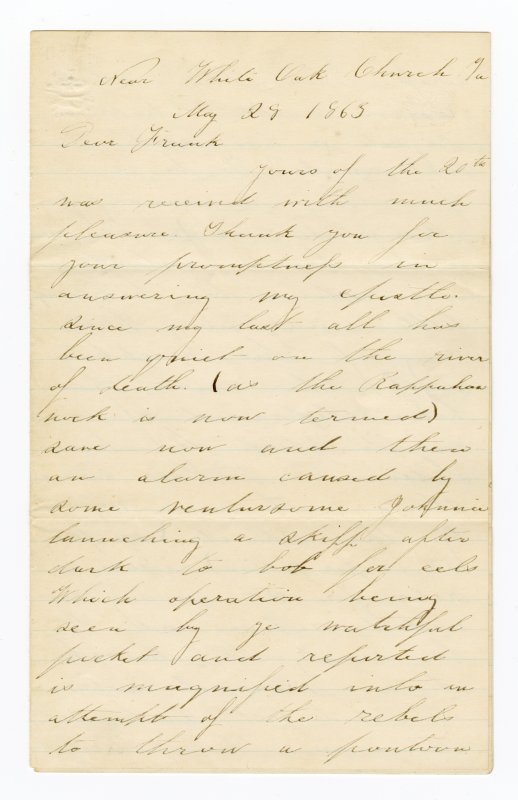 Near White Oak Church Va
May 28 1863
Dear Frank
yours of the 20th
was received with much
pleasure. Thank you for
your promptness in
answering my epistle.
Since my last all has
been quiet on the river
of death. (as the Rappahan
nock is now termed)
save now and then
an alarm caused by
some venturesome Johnnie
launching a skiff after
dark to bob for eels
Which operation being
seen by ye watchful
picket and reported
is magnified into an
attempt of the rebels
to throw a pontoon